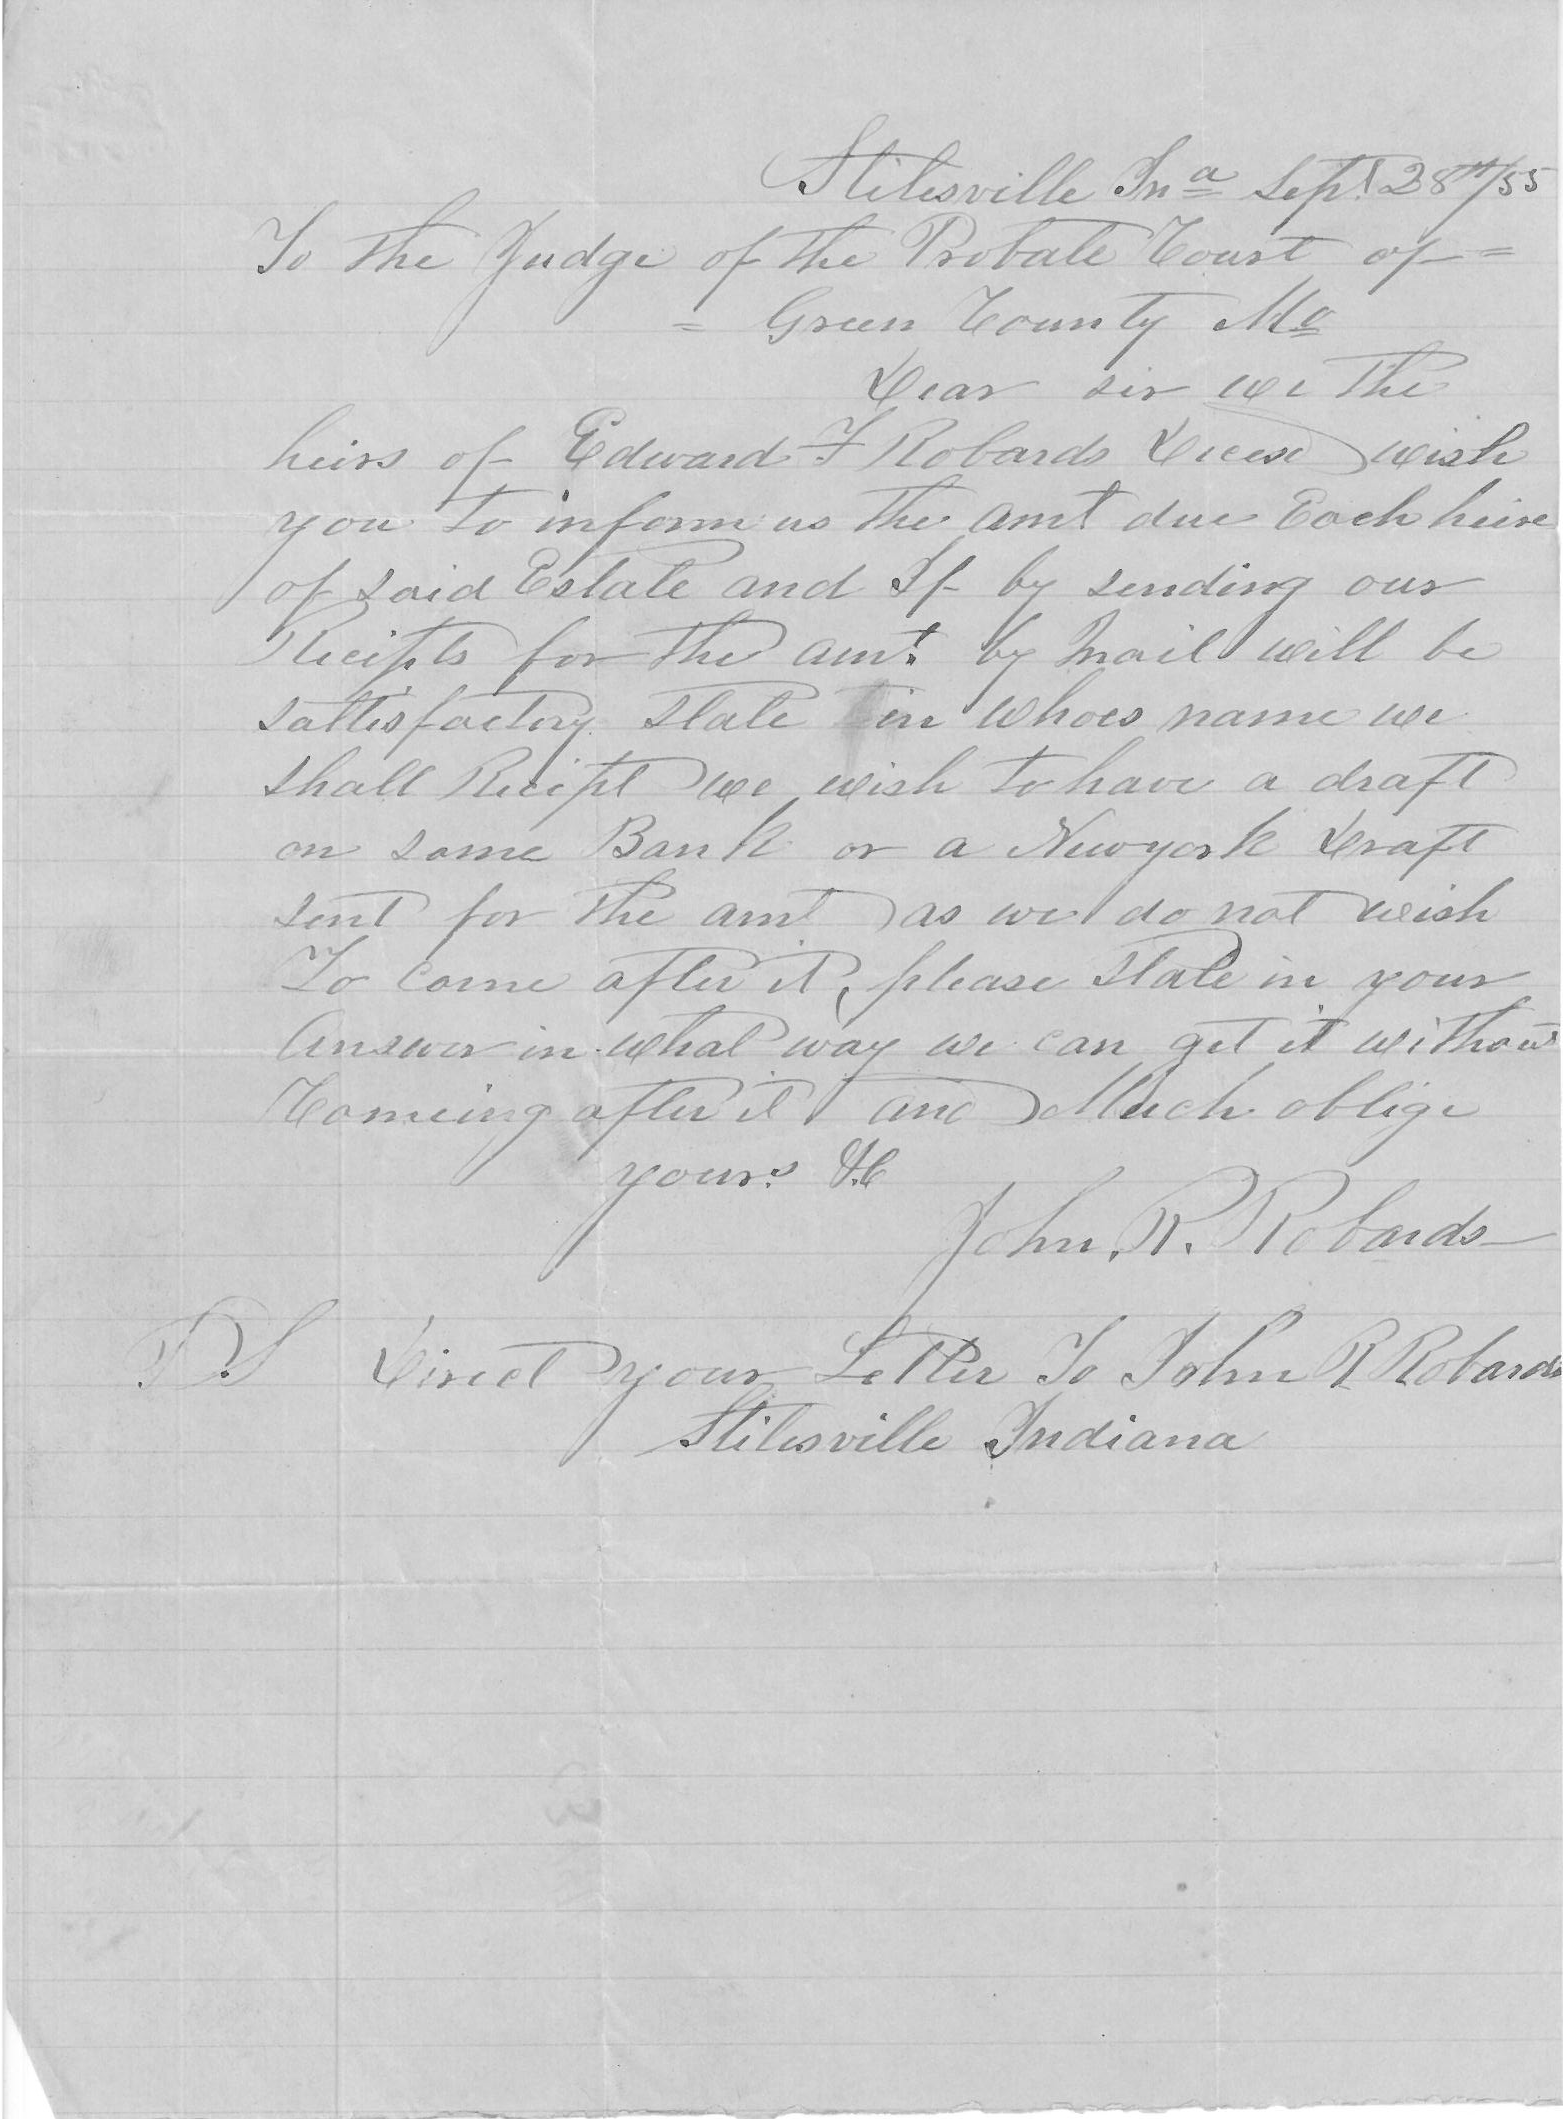 Stilesville Ina Sept 28th/55
To the Judge of the Probate Court of =
= Green County Mo
Dear sir we the
heirs of Edward F Robards Decesd wish
you to inform us the amt due Each heire
of said Estate and If by sending our
Reciepts for the amt. by mail will be
sattisfactory state in whoes name we
shall Reciept we wish to have a draft
on some Bank or a Newyork Draft
sent for the amt as we do not wish
To come after it, please state in your
Answer in what way we can get it without
Comeing after it and Much oblige
yours &C
John. R. Robards
PS Direct your Letter To John R Robards
Stilesville Indiana